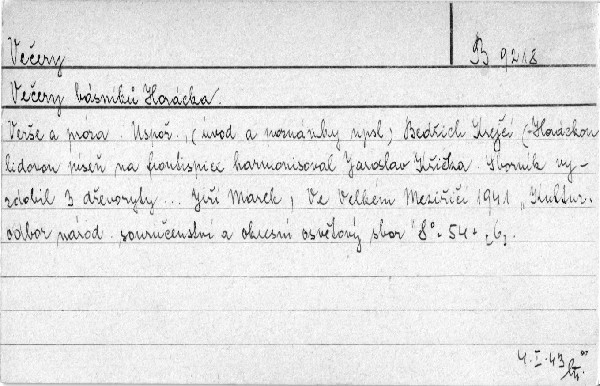 Večery
B 9218
Večery básníků Horácka.
Verše a próza. Uspoř., (úvod a poznámky npsl) Bedřich Krejčí (-Horáckou
lidovou píseň na frontispice harmonisoval Jaroslav Křička. Sborník vy-
zdobil 3 dřevoryby... Jiří Marek, Ve Velkém Meziříčí 1941 „Kultur.
odbor národ. souručenství a okresní osvětový sbor "8°. 54 + [6].
4.I.43